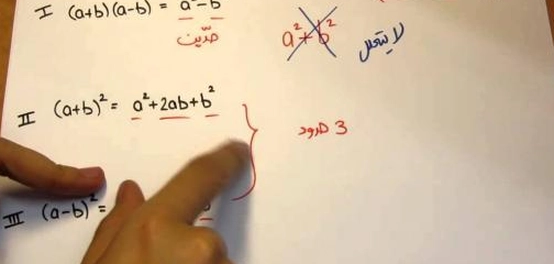 I (a+b)(a-b) = a²-b²
حدّين
a²+b²
لا يتحلل
II (a+b)² = a²+2ab+b²
3 حدود
III (a-b)² =